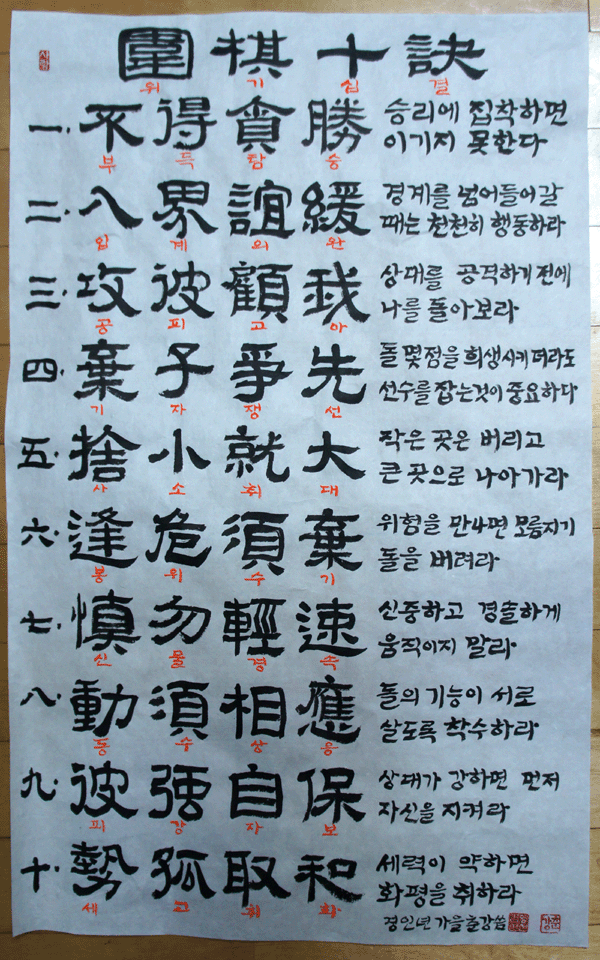 圍棋十訣
위기십결
一. 不得貪勝
부득탐승
승리에 집착하면
이기지 못한다
二. 入界誼緩
입계의완
경계를 넘어들어갈
때는 천천히 행동하라
三. 攻彼顧我
공피고아
상대를 공격하기 전에
나를 돌아보라
四. 棄子爭先
기자쟁선
돌 몇점을 희생시키더라도
선수를 잡는것이 중요하다
五. 捨小就大
사소취대
작은 곳은 버리고
큰 곳으로 나아가라
六. 逢危須棄
봉위수기
위험을 만나면 모름지기
돌을 버려라
七. 愼勿輕速
신물경속
신중하고 경솔하게
움직이지 말라
八. 動須相應
동수상응
돌의 기능이 서로
살도록 착수하라
九. 彼强自保
피강자보
상대가 강하면 먼저
자신을 지켜라
十. 勢孤取和
세고취화
세력이 약하면
화평을 취하라
경인년 가을 춘강 씀